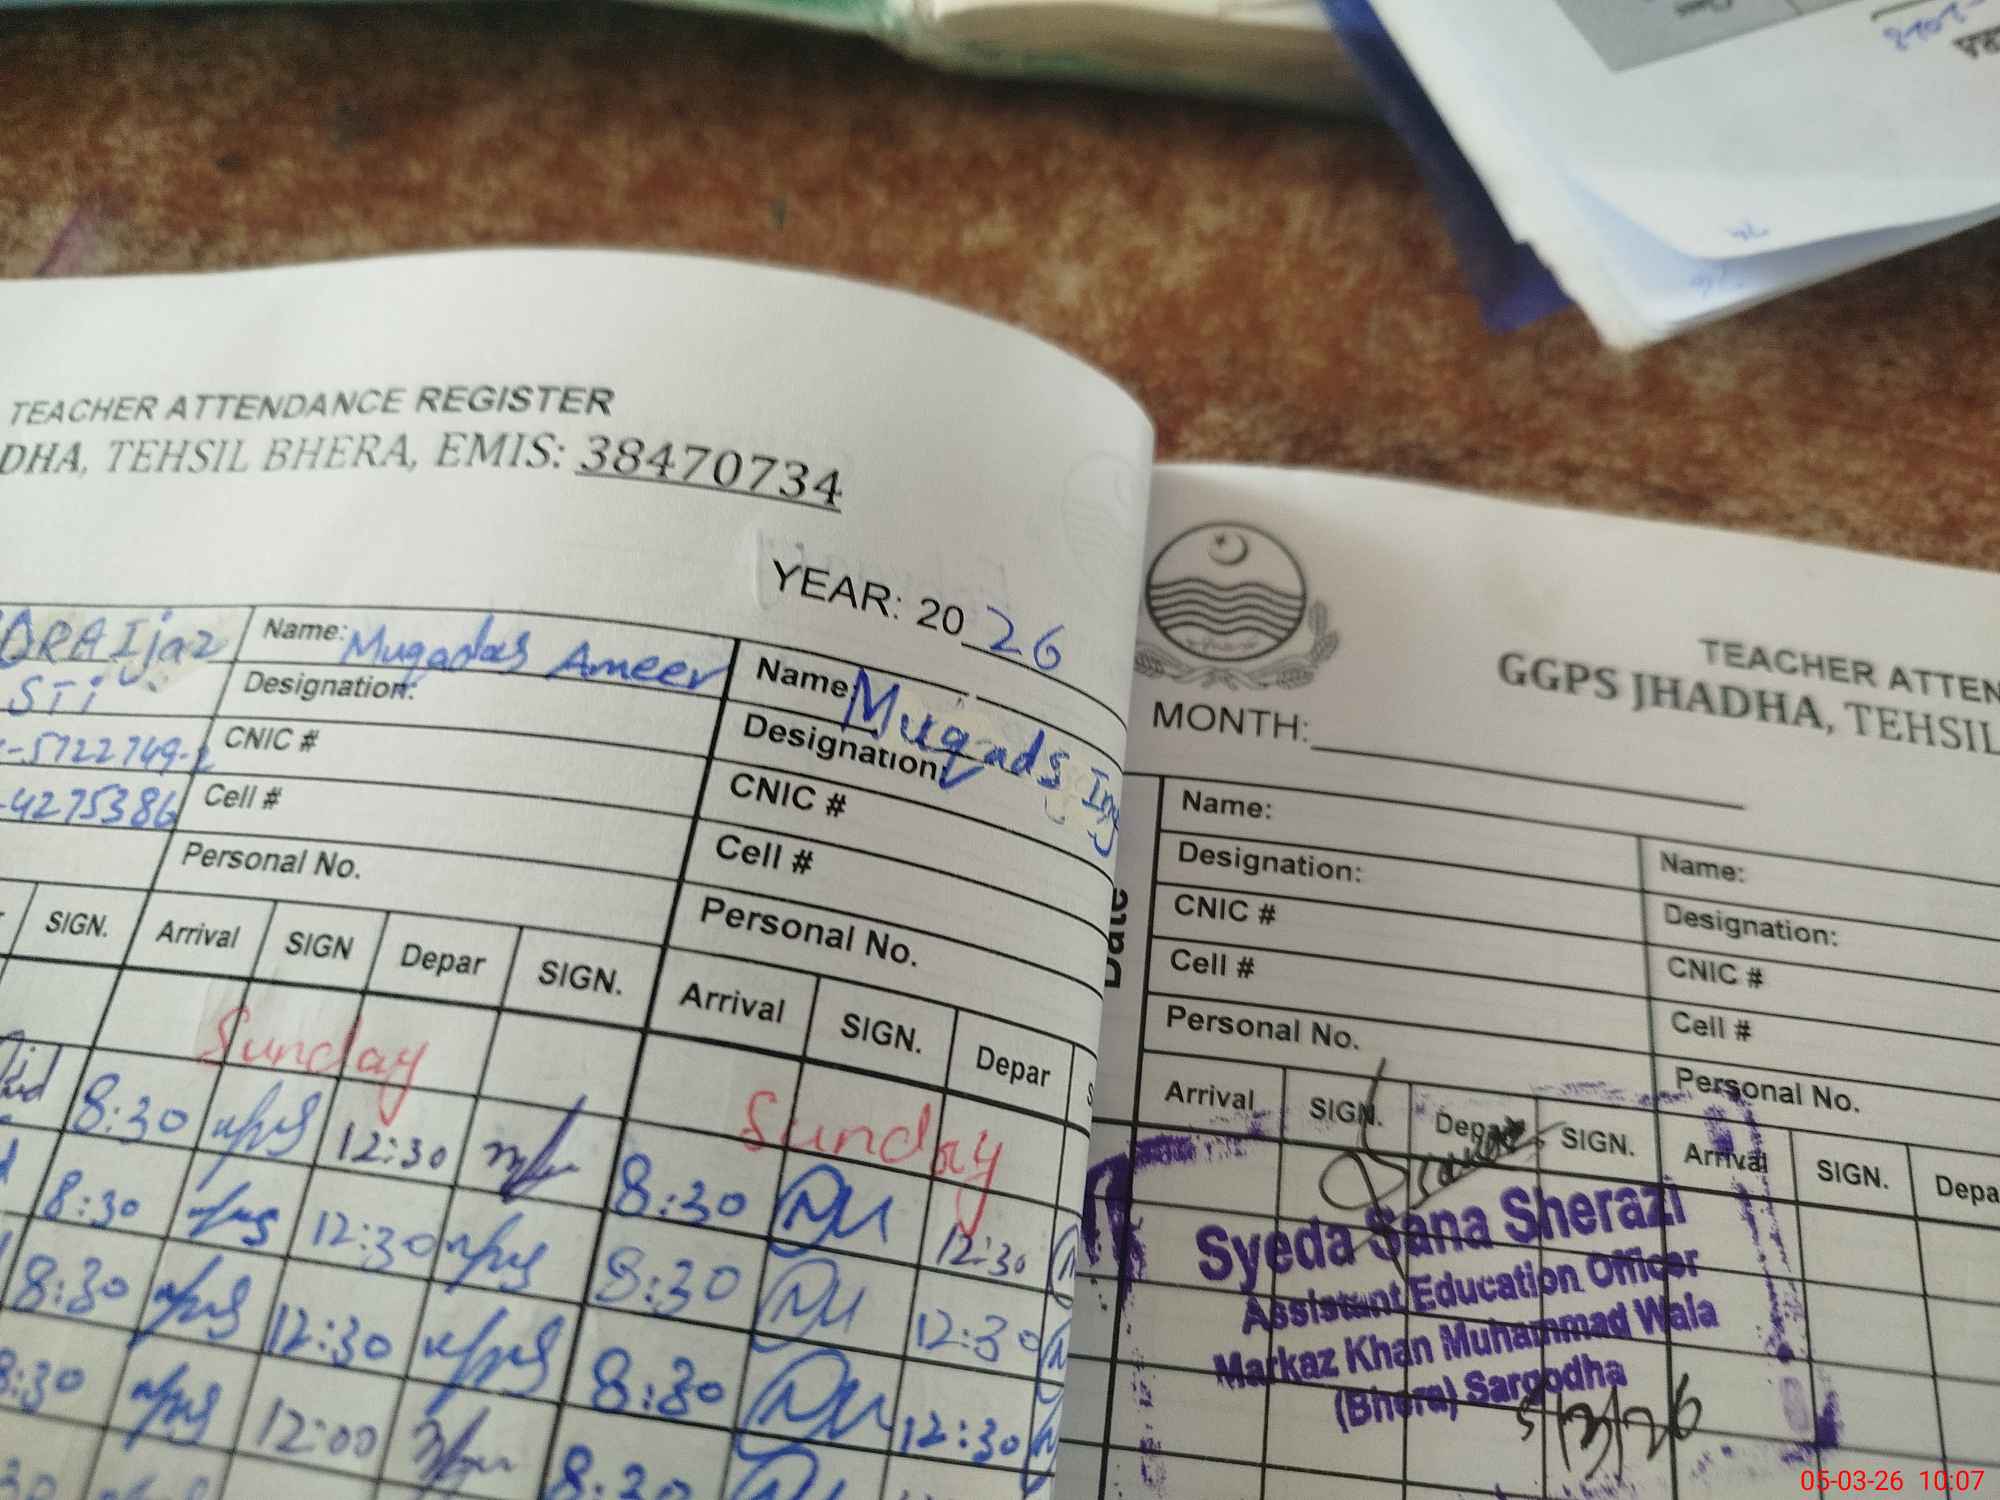 TEACHER ATTENDANCE REGISTER
DHA, TEHSIL BHERA, EMIS: 38470734
YEAR: 2026
Ijaz
STi
-5722749-
-4275386
Name: Muqadas Ameer
Designation:
CNIC #
Cell #
Personal No.
Name: Muqads
Designation:
CNIC #
Cell #
Personal No.
SIGN. Arrival SIGN Depar SIGN. Arrival SIGN. Depar
Sunday Sunday
8:30 12:30 8:30 12:30
8:30 12:30 8:30 12:30
8:30 12:30 8:30 12:30
8:30 12:00 8:30
30
TEACHER ATTEN
GGPS JHADHA, TEHSIL
MONTH:
Date
Name:
Designation:
CNIC #
Cell #
Personal No.
Name:
Designation:
CNIC #
Cell #
Personal No.
Arrival SIGN. Depar SIGN. Arrival SIGN. Depa
Syeda Sana Sherazi
Assistant Education Officer
Markaz Khan Muhammad Wala
(Bhera) Sargodha
5/3/26
05-03-26 10:07